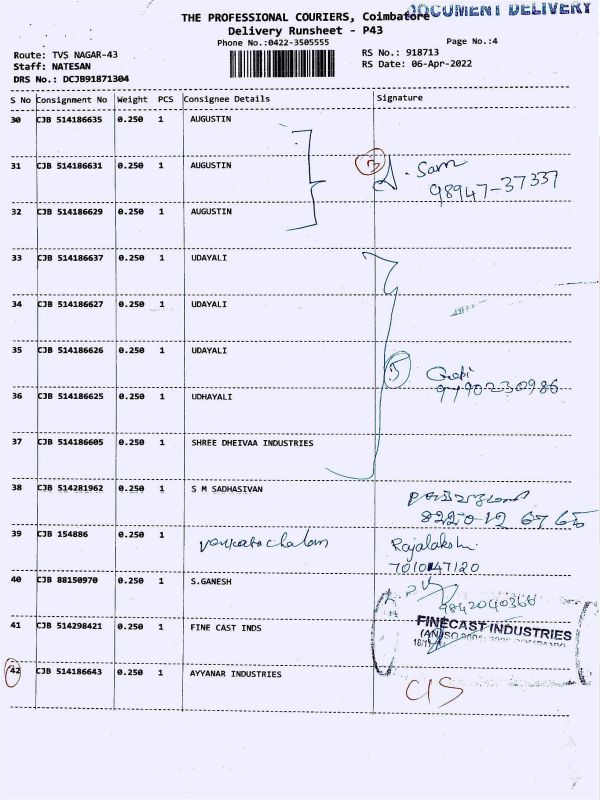 DOCUMENT DELIVERY
THE PROFESSIONAL COURIERS, Coimbatore
Delivery Runsheet - P43
Phone No.:0422-3505555
Page No.:4
Route: TVS NAGAR-43
RS No.: 918713
Staff: NATESAN
RS Date: 06-Apr-2022
DRS No.: DCJB91871304
S No Consignment No Weight PCS Consignee Details Signature
30 CJB 514186635 0.250 1 AUGUSTIN
31 CJB 514186631 0.250 1 AUGUSTIN
3 Sam
98947-37337
32 CJB 514186629 0.250 1 AUGUSTIN
33 CJB 514186637 0.250 1 UDAYALI
34 CJB 514186627 0.250 1 UDAYALI
35 CJB 514186626 0.250 1 UDAYALI
5 Gopi
36 CJB 514186625 0.250 1 UDHAYALI
37 CJB 514186605 0.250 1 SHREE DHEIVAA INDUSTRIES
38 CJB 514281962 0.250 1 S M SADHASIVAN
8220 12 67 65
39 CJB 154886 0.250 1 Venkatachalam Rajalakshi
7010147120
40 CJB 88150970 0.250 1 S.GANESH
9842040366
41 CJB 514298421 0.250 1 FINE CAST INDS
FINECAST INDUSTRIES
(AN ISO
42 CJB 514186643 0.250 1 AYYANAR INDUSTRIES
C/S